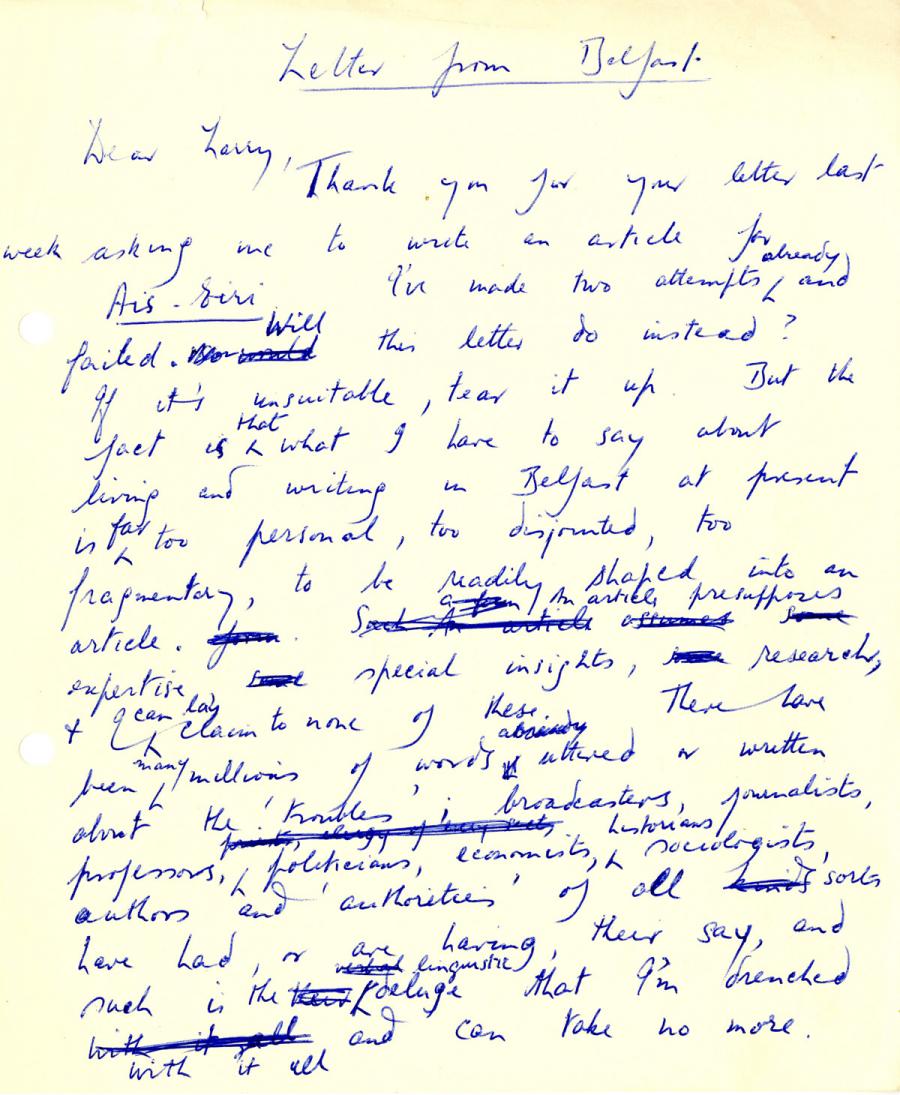 Letter from Belfast.
Dear Larry,
Thank you for your letter last
week asking me to write an article for
Ais-Eiri I've made two attempts already and
failed. Will this letter do instead?
If it's unsuitable, tear it up. But the
fact is that what I have to say about
living and writing in Belfast at present
is far too personal, too disjointed, too
fragmentary, to be readily shaped into an
article. An article presupposes
expertise, special insights, research,
+ I can lay claim to none of these. There have
been many millions of words already uttered or written
about the 'troubles'; broadcasters, journalists,
professors, politicians, economists, historians, sociologists,
authors and 'authorities' of all kinds sorts
have had, or are having, their say, and
such is the verbal linguistic deluge that I'm drenched
with it all and can take no more.
with it all